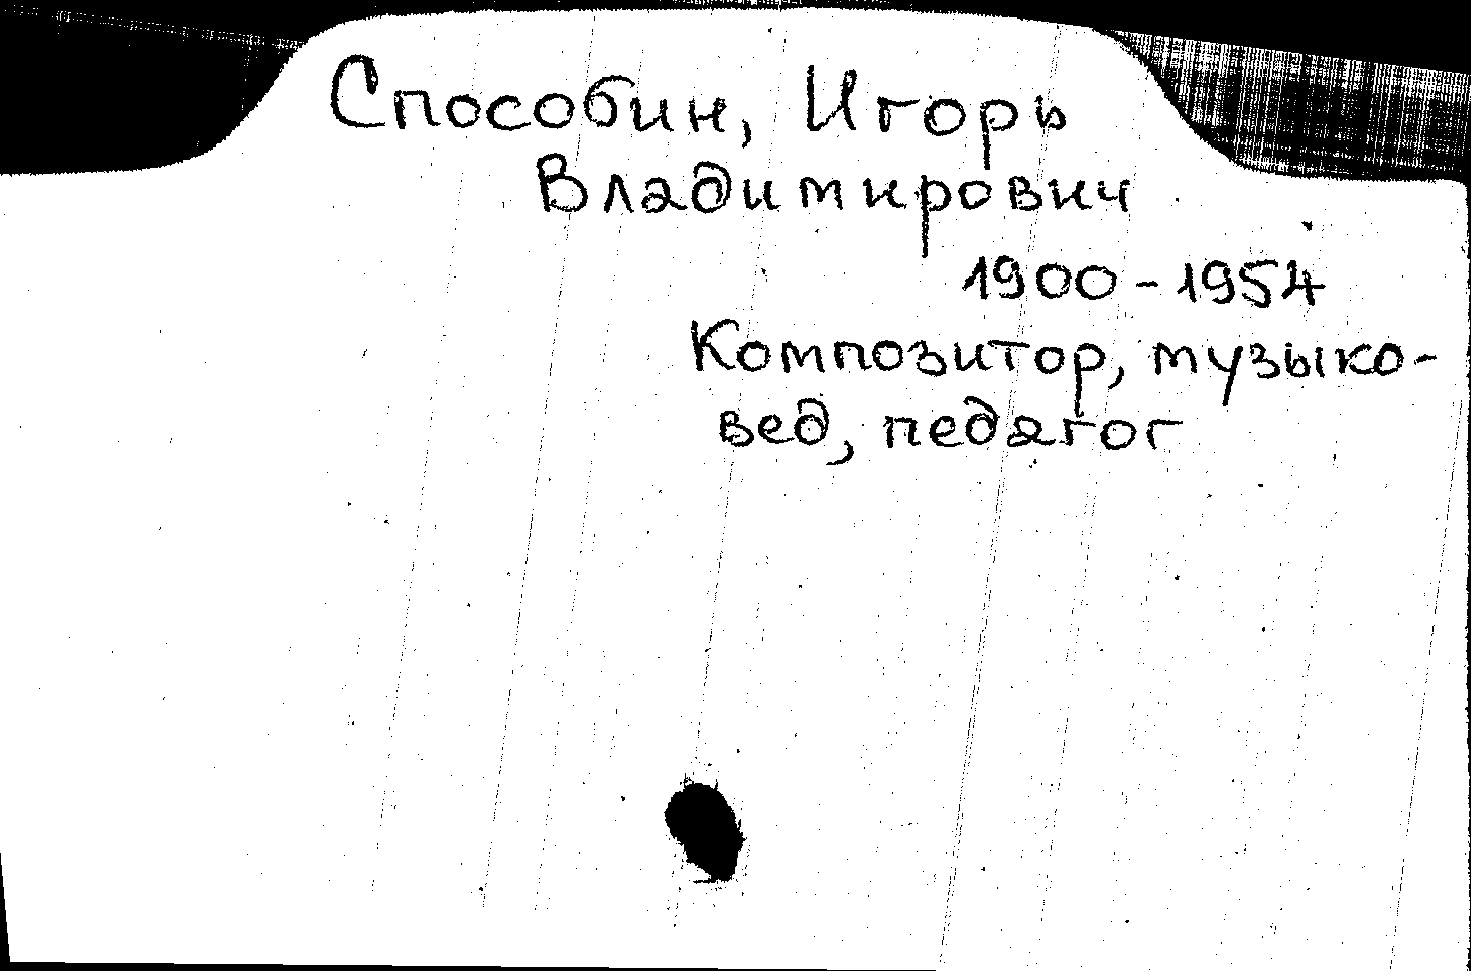 Способин, Игорь
Владимирович
1900-1954
Композитор, музыко-
вед, педагог